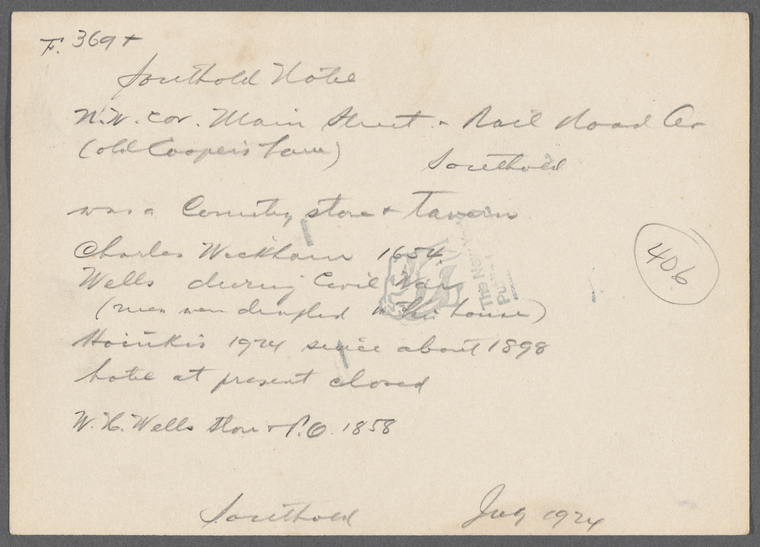 F. 369+
Southold Hotel
N.W. cor. Main Street & Rail Road Av
(old Coopers Lane)
Southold
was a Country store & Tavern
Charles Wickham 1654
Wells during Civil War
(men were drafted in this house)
406
1924 since about 1898
hotel at present closed
W. H. Wells Store & P.O. 1858
Southold July 1924